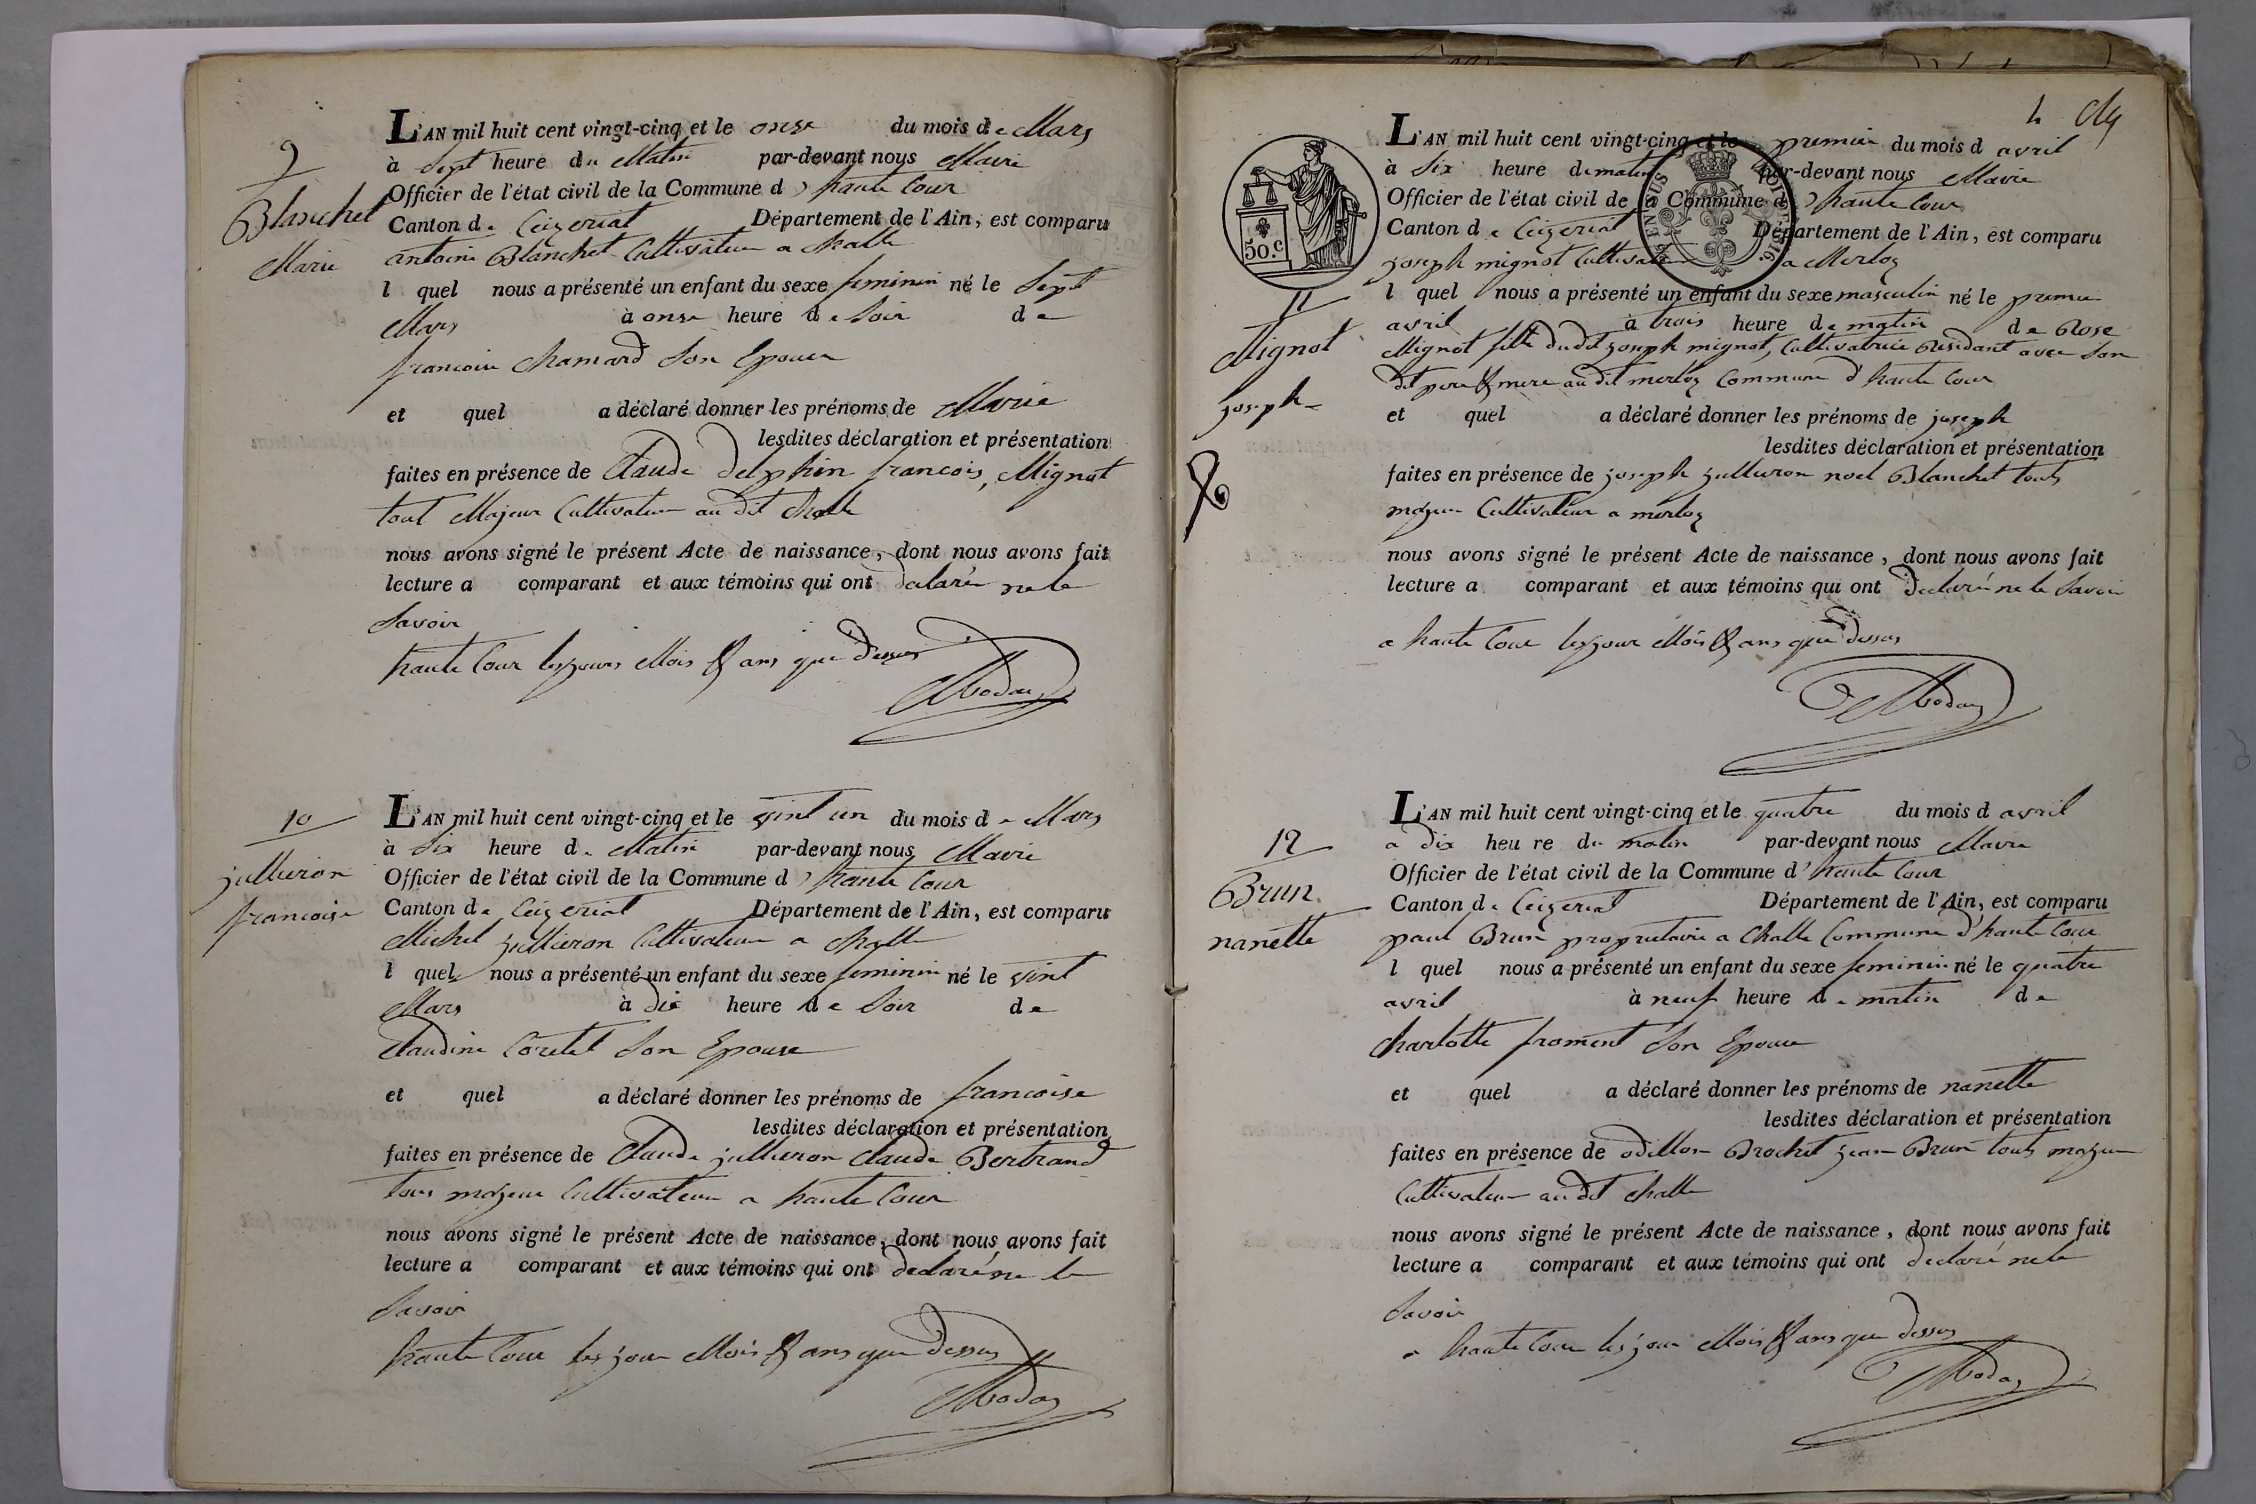 9
Blanchet
Marie
L'AN mil huit cent vingt-cinq et le onze du mois de Mars
à Sept heure du Matin par-devant nous Maire
Officier de l'état civil de la Commune d'haute Cour
Canton de Ceizeriat Département de l'Ain, est comparu
antoine Blanchet Cultivateur a Challe
l quel nous a présenté un enfant du sexe feminin né le Sept
Mars à onze heure de Soir de
francoise Chamard Son Epouse
et quel a déclaré donner les prénoms de Marie
lesdites déclaration et présentation
faites en présence de Claude Delphin francois, Mignot
tout Majeur Cultivateur au dit Challe
nous avons signé le présent Acte de naissance, dont nous avons fait
lecture a comparant et aux témoins qui ont declaré ne le
Savoir
haute Cour les jours Mois & ans que Dessus
10
jullieron
francoise
L'AN mil huit cent vingt-cinq et le vint un du mois de Mars
à Six heure de Matin par-devant nous Maire
Officier de l'état civil de la Commune d'haute Cour
Canton de Ceizeriat Département de l'Ain, est comparu
Michel jullieron Cultivateur a Challe
l quel nous a présenté un enfant du sexe feminin né le vint
Mars à dix heure de Soir de
Claudine Son Epouse
et quel a déclaré donner les prénoms de francoise
lesdites déclaration et présentation
faites en présence de Claude jullieron Claude Bertrand
tous majeur Cultivateur a haute Cour
nous avons signé le présent Acte de naissance, dont nous avons fait
lecture a comparant et aux témoins qui ont declaré ne le
Savoir
haute Cour les jour Mois & ans que Dessus
4
50.c
11
Mignot
joseph
L'AN mil huit cent vingt-cinq et le premier du mois d avril
à Six heure de matin par-devant nous Maire
Officier de l'état civil de la Commune d'haute Cour
Canton de Ceizeriat Département de l'Ain, est comparu
joseph mignot Cultivateur a Merloz
l quel nous a présenté un enfant du sexe masculin né le premier
avril à trois heure de matin de Rose
Mignot fille dudit joseph mignot, Cultivatrice Residant avec Son
dit pere & mere au dit merloz Commune d'haute Cour
et quel a déclaré donner les prénoms de joseph
lesdites déclaration et présentation
faites en présence de joseph jullieron noel Blanchet touts
majeur Cultivateur a merloz
nous avons signé le présent Acte de naissance, dont nous avons fait
lecture a comparant et aux témoins qui ont declaré ne le Savoir
a haute Cour les jour Mois & ans que Dessus
12
Brun
nanette
L'AN mil huit cent vingt-cinq et le quatre du mois d avril
a dix heure du matin par-devant nous Maire
Officier de l'état civil de la Commune d'haute Cour
Canton de Ceizeriat Département de l'Ain, est comparu
paul Brun proprietaire a Challe Commune d'haute Cour
l quel nous a présenté un enfant du sexe feminin né le quatre
avril à neuf heure de matin de
Charlotte froment Son Epouse
et quel a déclaré donner les prénoms de nanette
lesdites déclaration et présentation
faites en présence de odillon Brochet jean Brun touts majeur
Cultivateur au dit Challe
nous avons signé le présent Acte de naissance, dont nous avons fait
lecture a comparant et aux témoins qui ont declaré ne le
Savoir
a haute Cour les jour Mois & ans que dessus